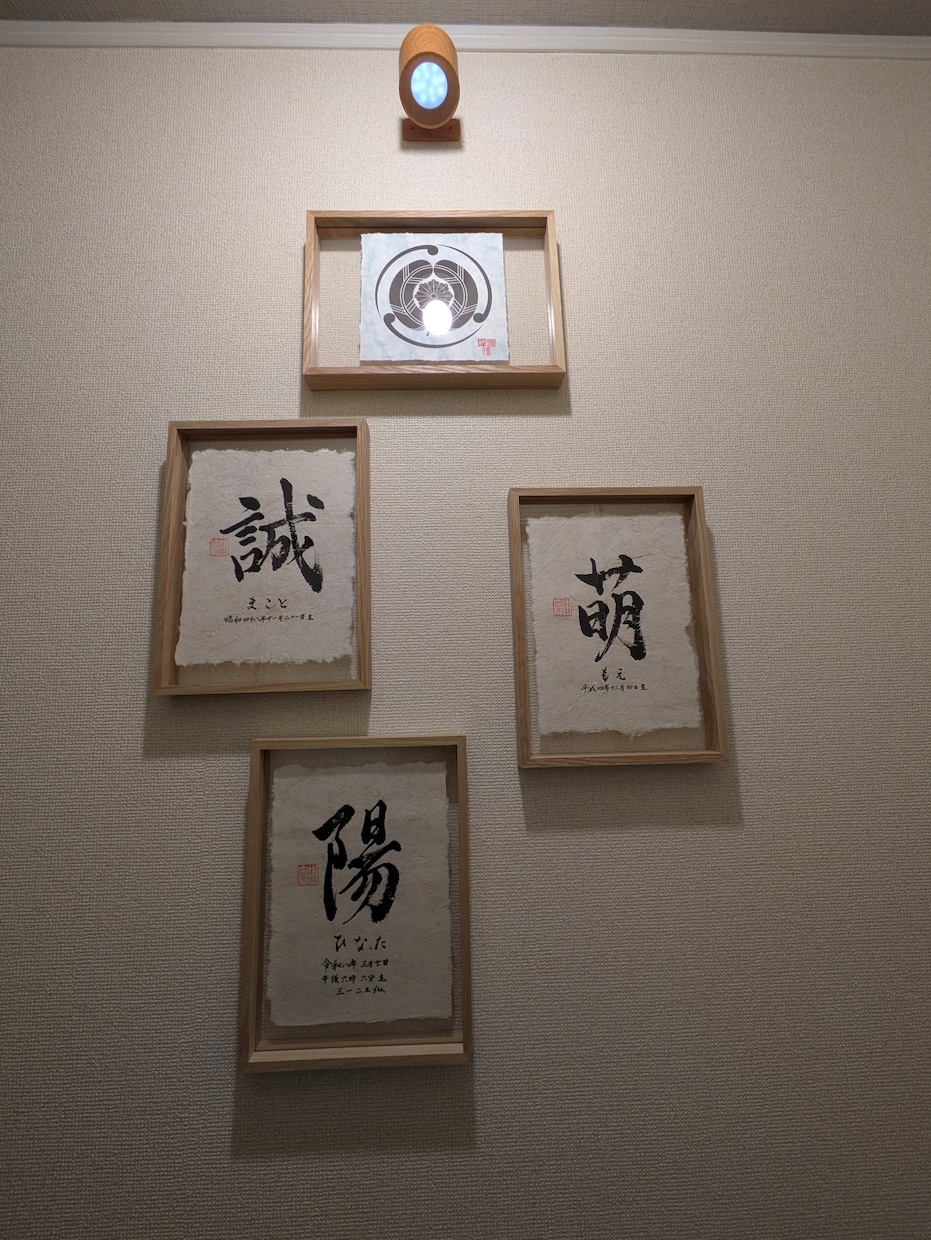 誠
まこと
昭和四十八年十一月二十一日生
萌
もえ
平成四年十二月四日生
陽
ひなた
令和八年三月七日
午後六時六分生